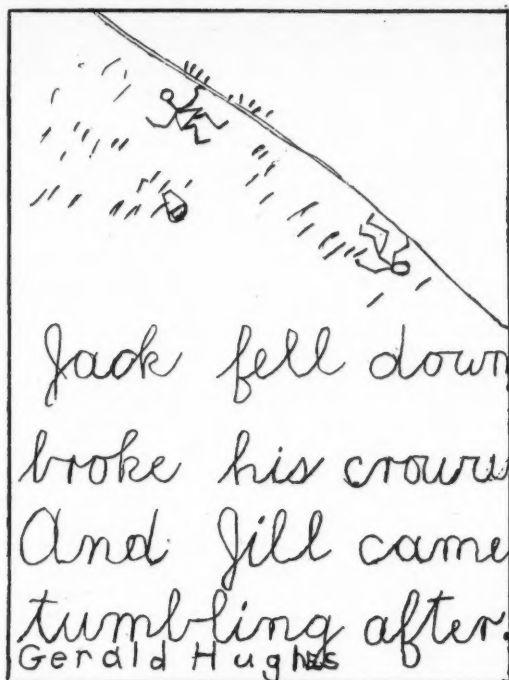 Jack fell down
broke his crown
And Jill came
tumbling after.
Gerald Hughes